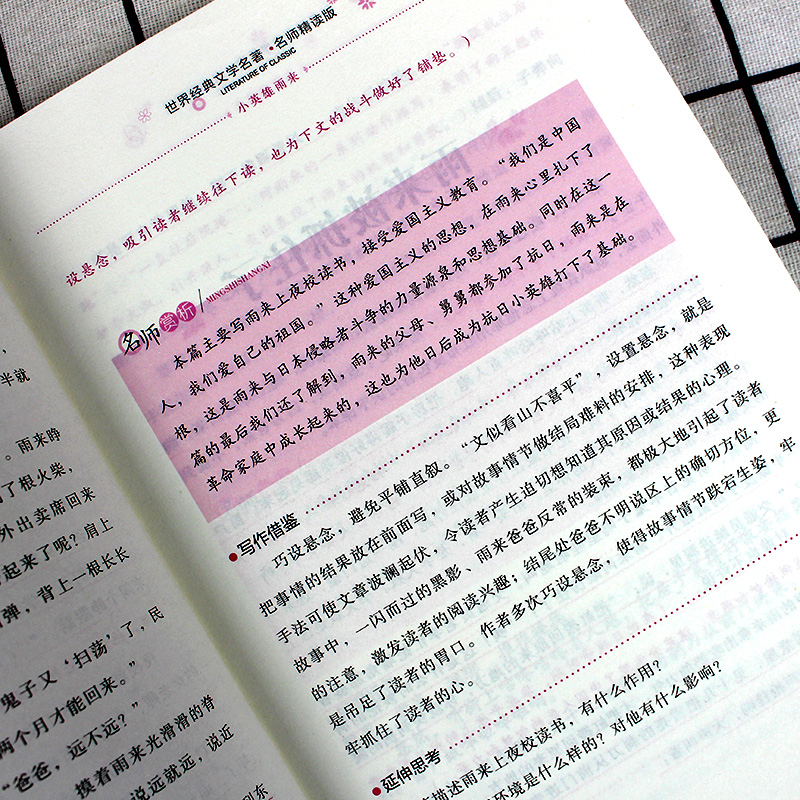 半就
。雨来睁
了根火柴，
外出卖席回来
起来了呢？肩上
弹，背上一根长长
鬼子又‘扫荡’了，民
两个月才能回来。”
“爸爸，远不远？”
摸着雨来光滑滑的脊
说远就远，说近
世界经典文学名著·名师精读版
LITERATURE OF CLASSIC
小英雄雨来
设悬念，吸引读者继续往下读，也为下文的战斗做好了铺垫。）
名师赏析
MINGSHISHANGXI
本篇主要写雨来上夜校读书，接受爱国主义教育。“我们是中国
人，我们爱自己的祖国。”这种爱国主义的思想，在雨来心里扎下了
根，这是雨来与日本侵略者斗争的力量源泉和思想基础。同时在这一
篇的最后我们还了解到，雨来的父母、舅舅都参加了抗日，雨来是在
革命家庭中成长起来的，这也为他日后成为抗日小英雄打下了基础。
写作借鉴
巧设悬念，避免平铺直叙。“文似看山不喜平”，设置悬念，就是
把事情的结果放在前面写，或对故事情节做结局难料的安排，这种表现
手法可使文章波澜起伏，令读者产生迫切想知道其原因或结果的心理。
故事中，一闪而过的黑影、雨来爸爸反常的装束，都极大地引起了读者
的注意，激发读者的阅读兴趣；结尾处爸爸不明说区上的确切方位，更
是吊足了读者的胃口。作者多次巧设悬念，使得故事情节跌宕生姿，牢
牢抓住了读者的心。
延伸思考
描述雨来上夜校读书，有什么作用？
环境是什么样的？对他有什么影响？